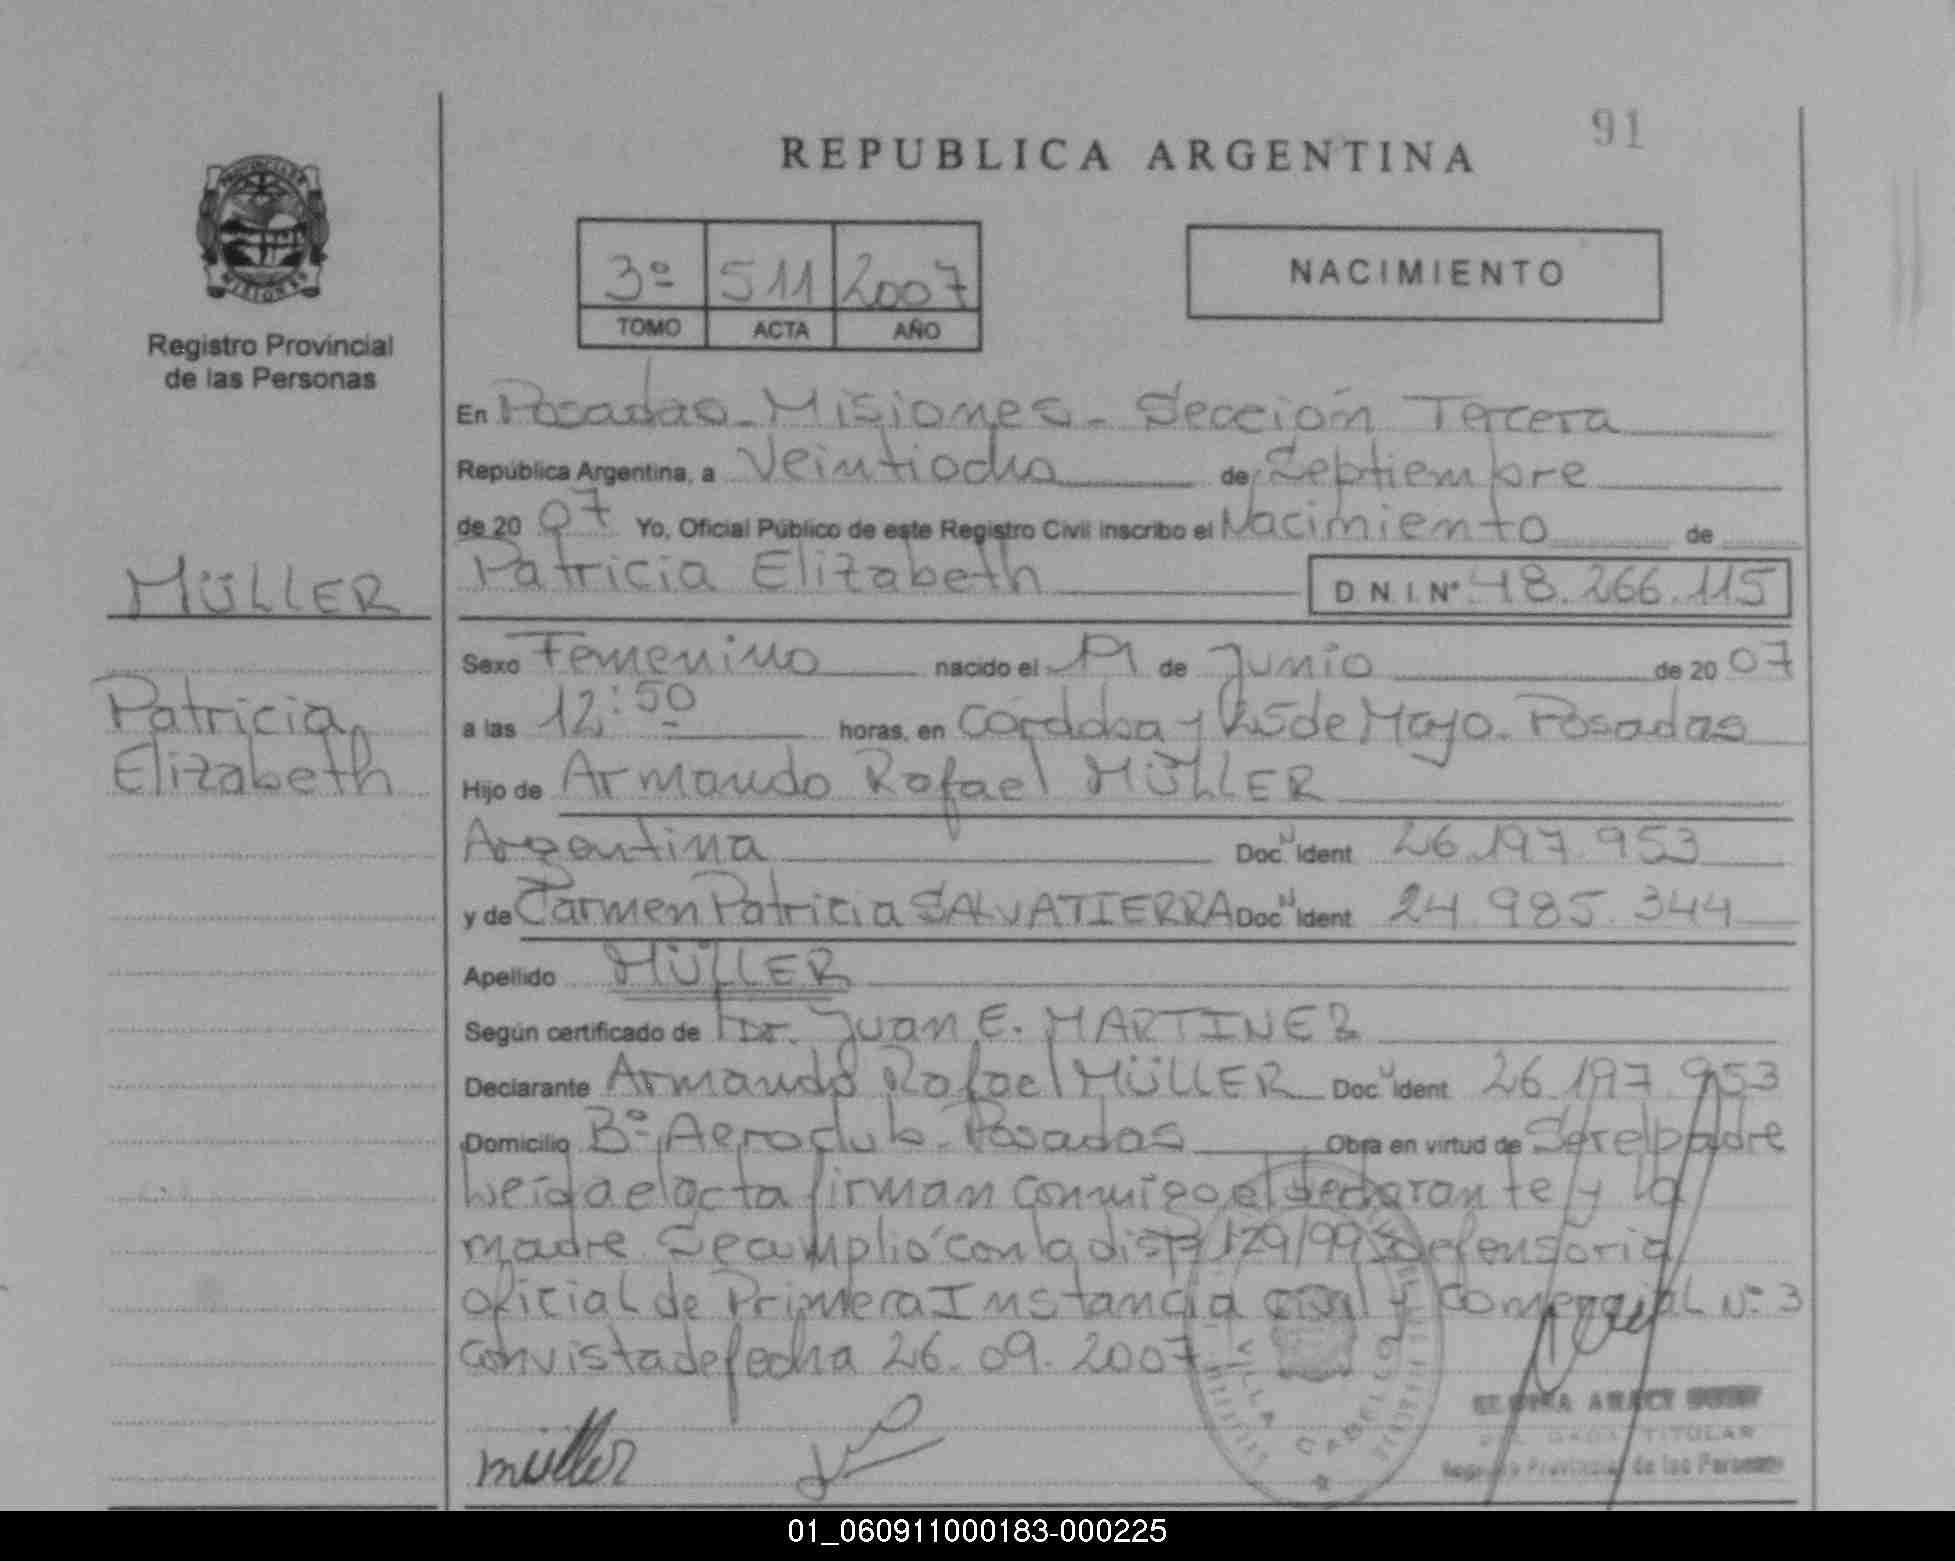 91
REPUBLICA ARGENTINA
3º 511 2007
TOMO ACTA AÑO
NACIMIENTO
Registro Provincial
de las Personas
En Posadas - Misiones - Sección Tercera
República Argentina, a Veintiocho de Septiembre
de 20 07 Yo, Oficial Público de este Registro Civil inscribo el Nacimiento de
MÜLLER
Patricia Elizabeth D.N.I. Nº 48.266.115
Sexo Femenino nacido el de Junio de 20 07
Patricia
Elizabeth
a las 12:50 horas, en Córdoba y 25 de Mayo. Posadas
Hijo de Armando Rafael MÜLLER
Argentina Doc. Ident 26.197.953
y de Carmen Patricia SALVATIERRA Doc. Ident 24.985.344
Apellido MÜLLER
Según certificado de Dr. Juan E. MARTINEZ
Declarante Armando Rafael MÜLLER Doc. Ident 26.197.953
Domicilio Bº Aeroclub - Posadas Obra en virtud de Ser el padre
leída el acta firman conmigo el declarante y la
madre Se cumplió con la disp 129/99 defensoria
oficial de Primera Instancia civil y comercial Nº 3
con vista de fecha 26.09.2007
müller
VILLA CABELLO
TITULAR
Registro Provincial de las Personas
01_060911000183-000225